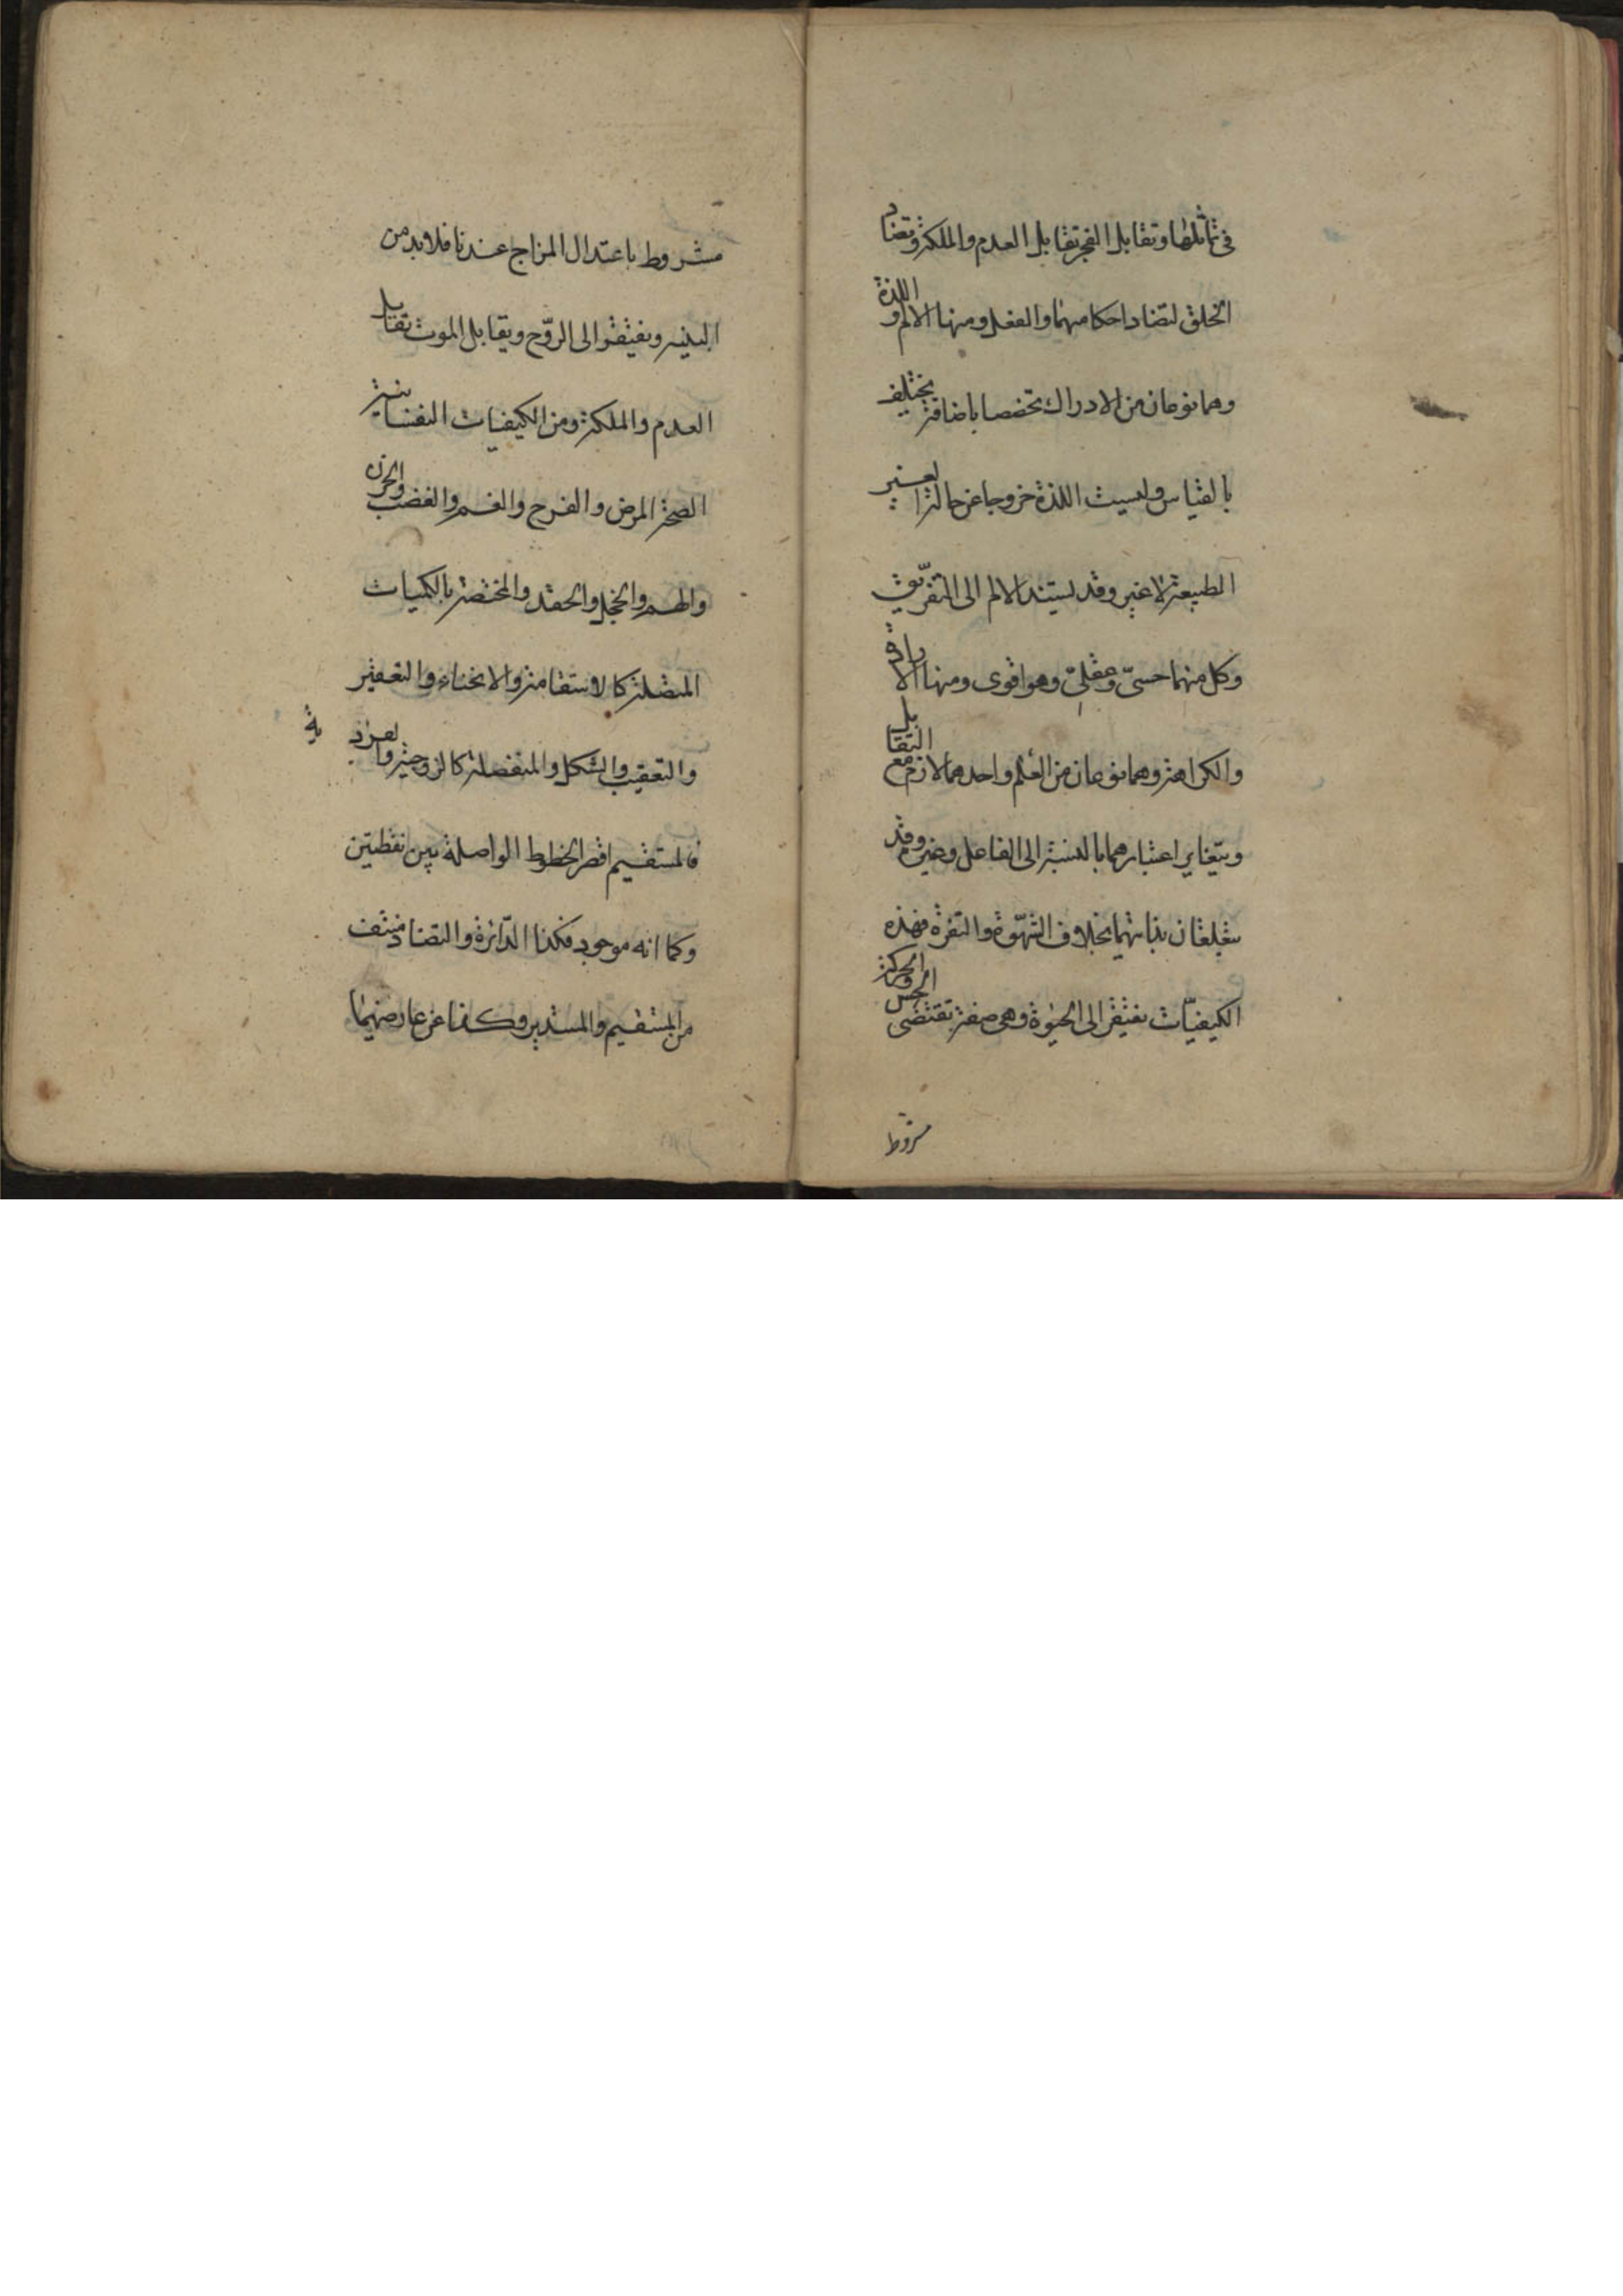 في تماثلها وتقابل العجز تقابل العدم والملكة وتضاد
الخلق لتضاد احكامهما والفعل ومنها الالم واللذة
وهما نوعان من الادراك تخصصا باضافة يختلف
بالقياس وليست اللذة خروجا عن حالة الغير
الطبيعة لا غير وقد يستند الالم الى التفريق
وكل منهما حسيّ وعقليّ وهو اقوى ومنها الارادة
والكراهة وهما نوعان من العلم واحدهما لازم مع التقابل
ويتغاير اعتبارهما بالنسبة الى الفاعل وغيره وقد
يتعلقان بذاتهما بخلاف الشهوة والنفرة فهذه
الكيفيّات تفتقر الى الحيٰوة وهي صفة تقتضي الحس والحركة
مشروط
مشروط باعتدال المزاج عندنا فلا بد من
البنيه ويفتقر الى الروح ويقابل الموت تقابل
العدم والملكة ومن الكيفيات النفسانية
الصحة المرض والفرح والغم والغضب والحزن
والهم والخجل والحقد والمختصة بالكميات
المتصلة كالاستقامة والانحناء والتعقير
والتقبيب والشكل والمنفصلة كالزوجية والفردية
فالمستقيم اقصر الخطوط الواصلة بين نقطتين
وكما انه موجود فكذا الدّائرة والتضاد منتف
من المستقيم والمستدير وكذا عن عارضيهما